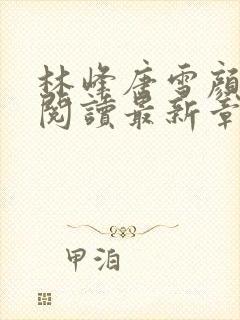 林峰唐雪顏
閱讀最新章
甲泊